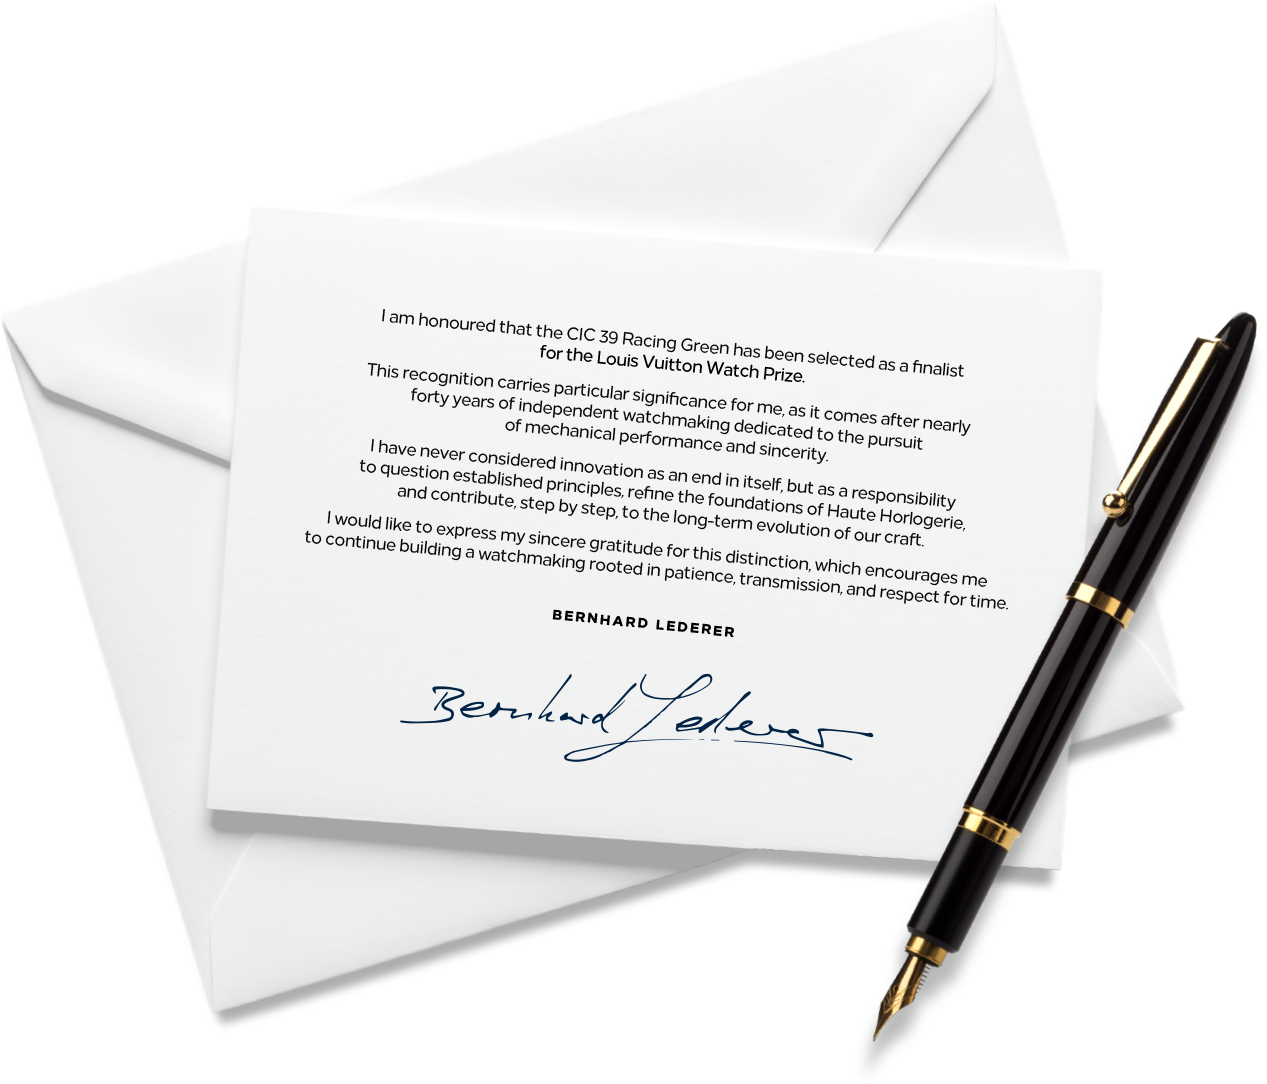 I am honoured that the CIC 39 Racing Green has been selected as a finalist
for the Louis Vuitton Watch Prize.
This recognition carries particular significance for me, as it comes after nearly
forty years of independent watchmaking dedicated to the pursuit
of mechanical performance and sincerity.
I have never considered innovation as an end in itself, but as a responsibility
to question established principles, refine the foundations of Haute Horlogerie,
and contribute, step by step, to the long-term evolution of our craft.
I would like to express my sincere gratitude for this distinction, which encourages me
to continue building a watchmaking rooted in patience, transmission, and respect for time.
BERNHARD LEDERER
Bernhard Lederer